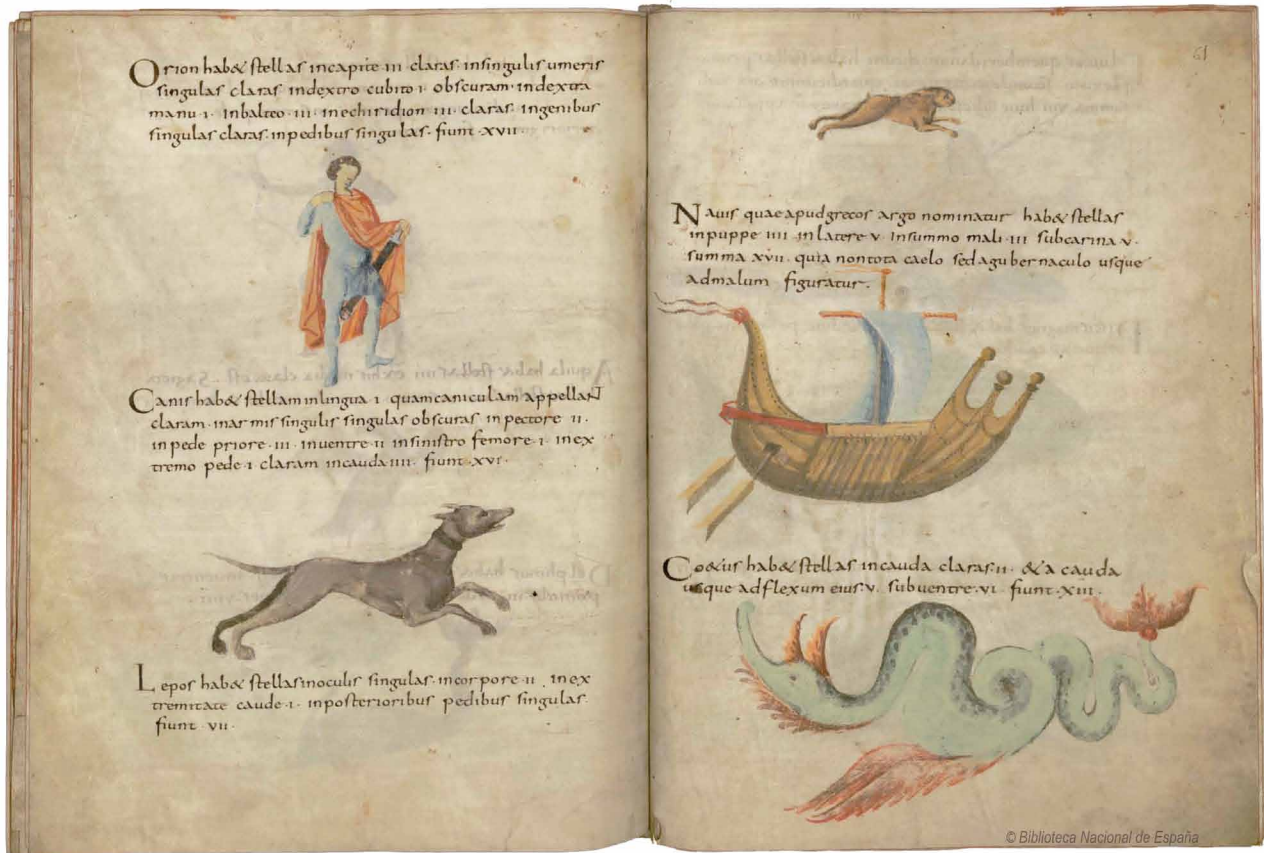 Orion hab& stellas incapite ·III· claras insingulis umeris
singulas claras indextro cubito ·I· obscuram· indextra
manu ·I· inbalteo ·III· inechiridion ·III· claras· ingenibus
singulas claras· inpedibus singulas· fiunt ·XVII·
Canis hab& stellam inlingua ·I· quam caniculam appellant
claram· inarmis singulis singulas obscuras in pectore ·II·
in pede priore ·III· inuentre ·II· insinistro femore ·I· inex
tremo pede ·I· claram incauda ·IIII· fiunt ·XVI·
Lepos hab& stellas inoculis singulas· incorpore ·II· inex
tremitate caude ·I· inposterioribus pedibus singulas·
fiunt ·VII·
61
Nauis quae apud grecos argo nominatur hab& stellas
inpuppe ·IIII· inlatere ·V· insummo mali ·III· subcarina ·V·
summa XVII· quia nontota caelo sed agubernaculo usque
admalum figuratur·
Co&us hab& stellas incauda claras ·II· &a cauda
usque adflexum eius ·V· subuentre ·VI· fiunt ·XIII·
© Biblioteca Nacional de España